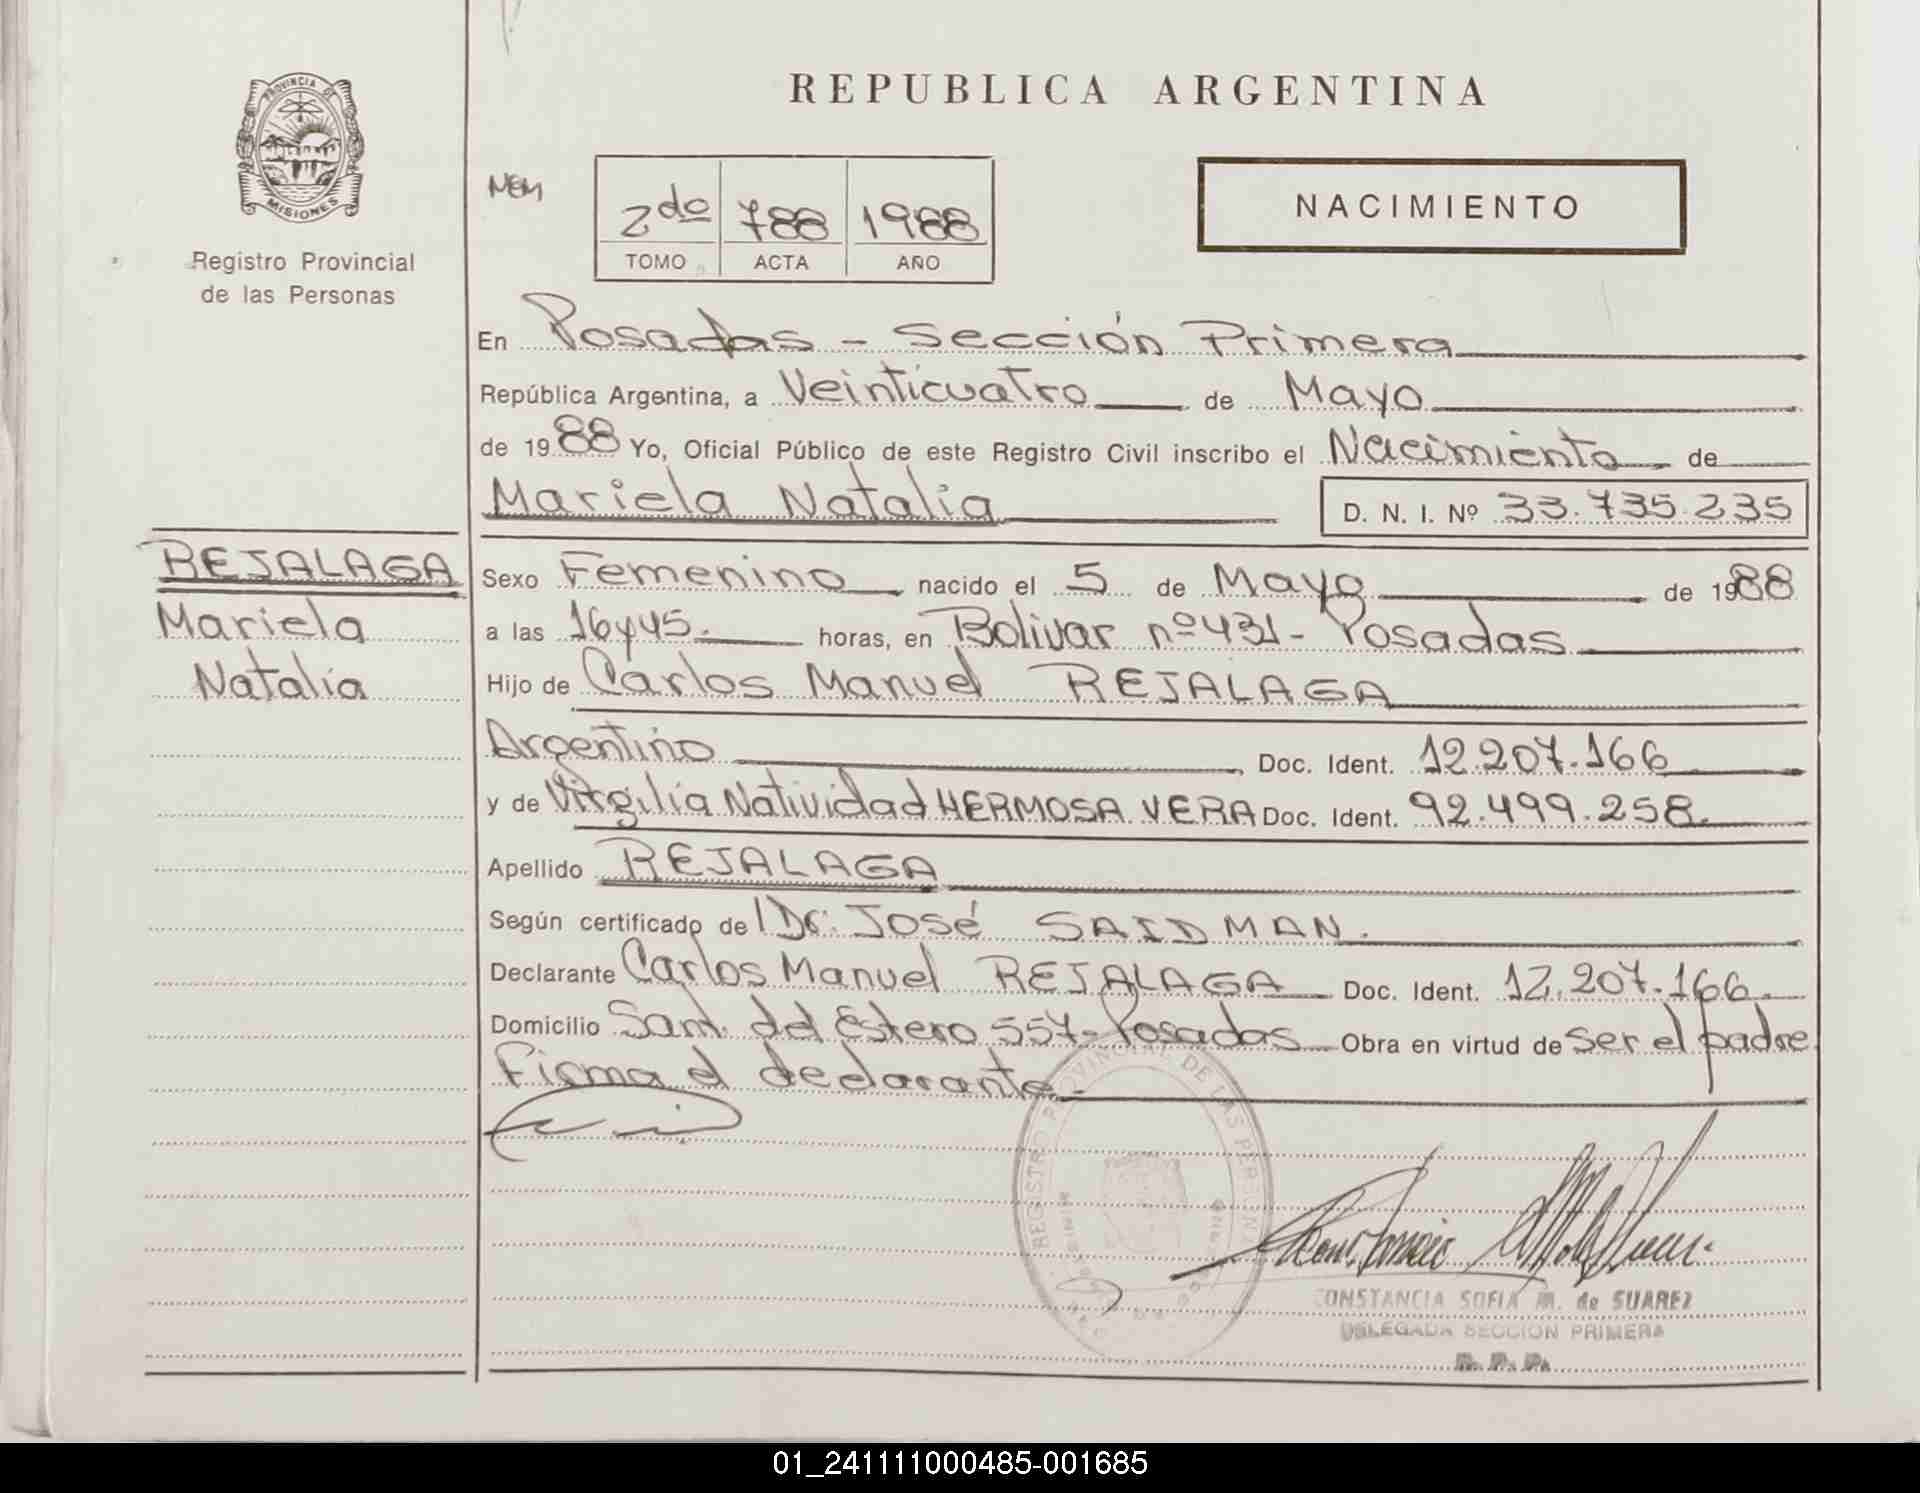 PROVINCIA DE
MISIONES
Registro Provincial
de las Personas
REPUBLICA ARGENTINA
MEM
2do 788 1988
TOMO ACTA AÑO
NACIMIENTO
En Posadas - Sección Primera
República Argentina, a Veinticuatro de Mayo
de 1988 Yo, Oficial Público de este Registro Civil inscribo el Nacimiento de
Mariela Natalia D. N. I. Nº 33.735.235
REJALAGA
Mariela
Natalia
Sexo Femenino nacido el 5 de Mayo de 1988
a las 16y45. horas, en Bolivar nº431- Posadas
Hijo de Carlos Manuel REJALAGA
Argentino Doc. Ident. 12.207.166
y de Virgilia Natividad HERMOSA VERA Doc. Ident. 92.499.258.
Apellido REJALAGA
Según certificado de Dr. José SAIDMAN.
Declarante Carlos Manuel REJALAGA Doc. Ident. 12.207.166.
Domicilio Sant. del Estero 557- Posadas Obra en virtud de ser el padre.
Firma el declarante.-
REGISTRO PROVINCIAL DE LAS PERSONAS
CONSTANCIA SOFIA M. de SUAREZ
DELEGADA SECCION PRIMERA
R. P. P.
01_241111000485-001685